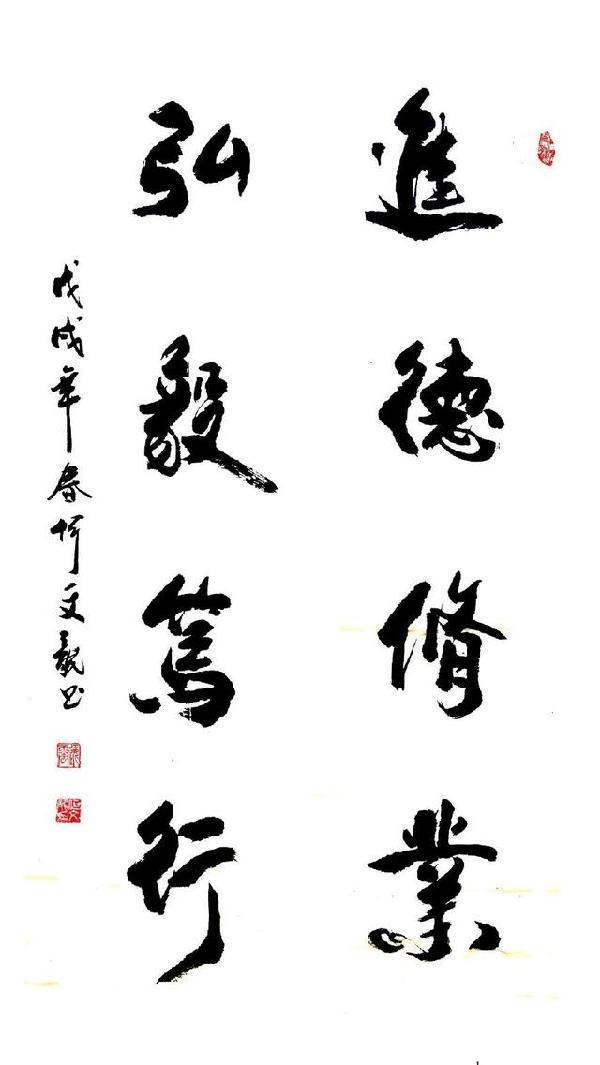 進德脩業
弘毅篤行
戊戌年春忻文龍書